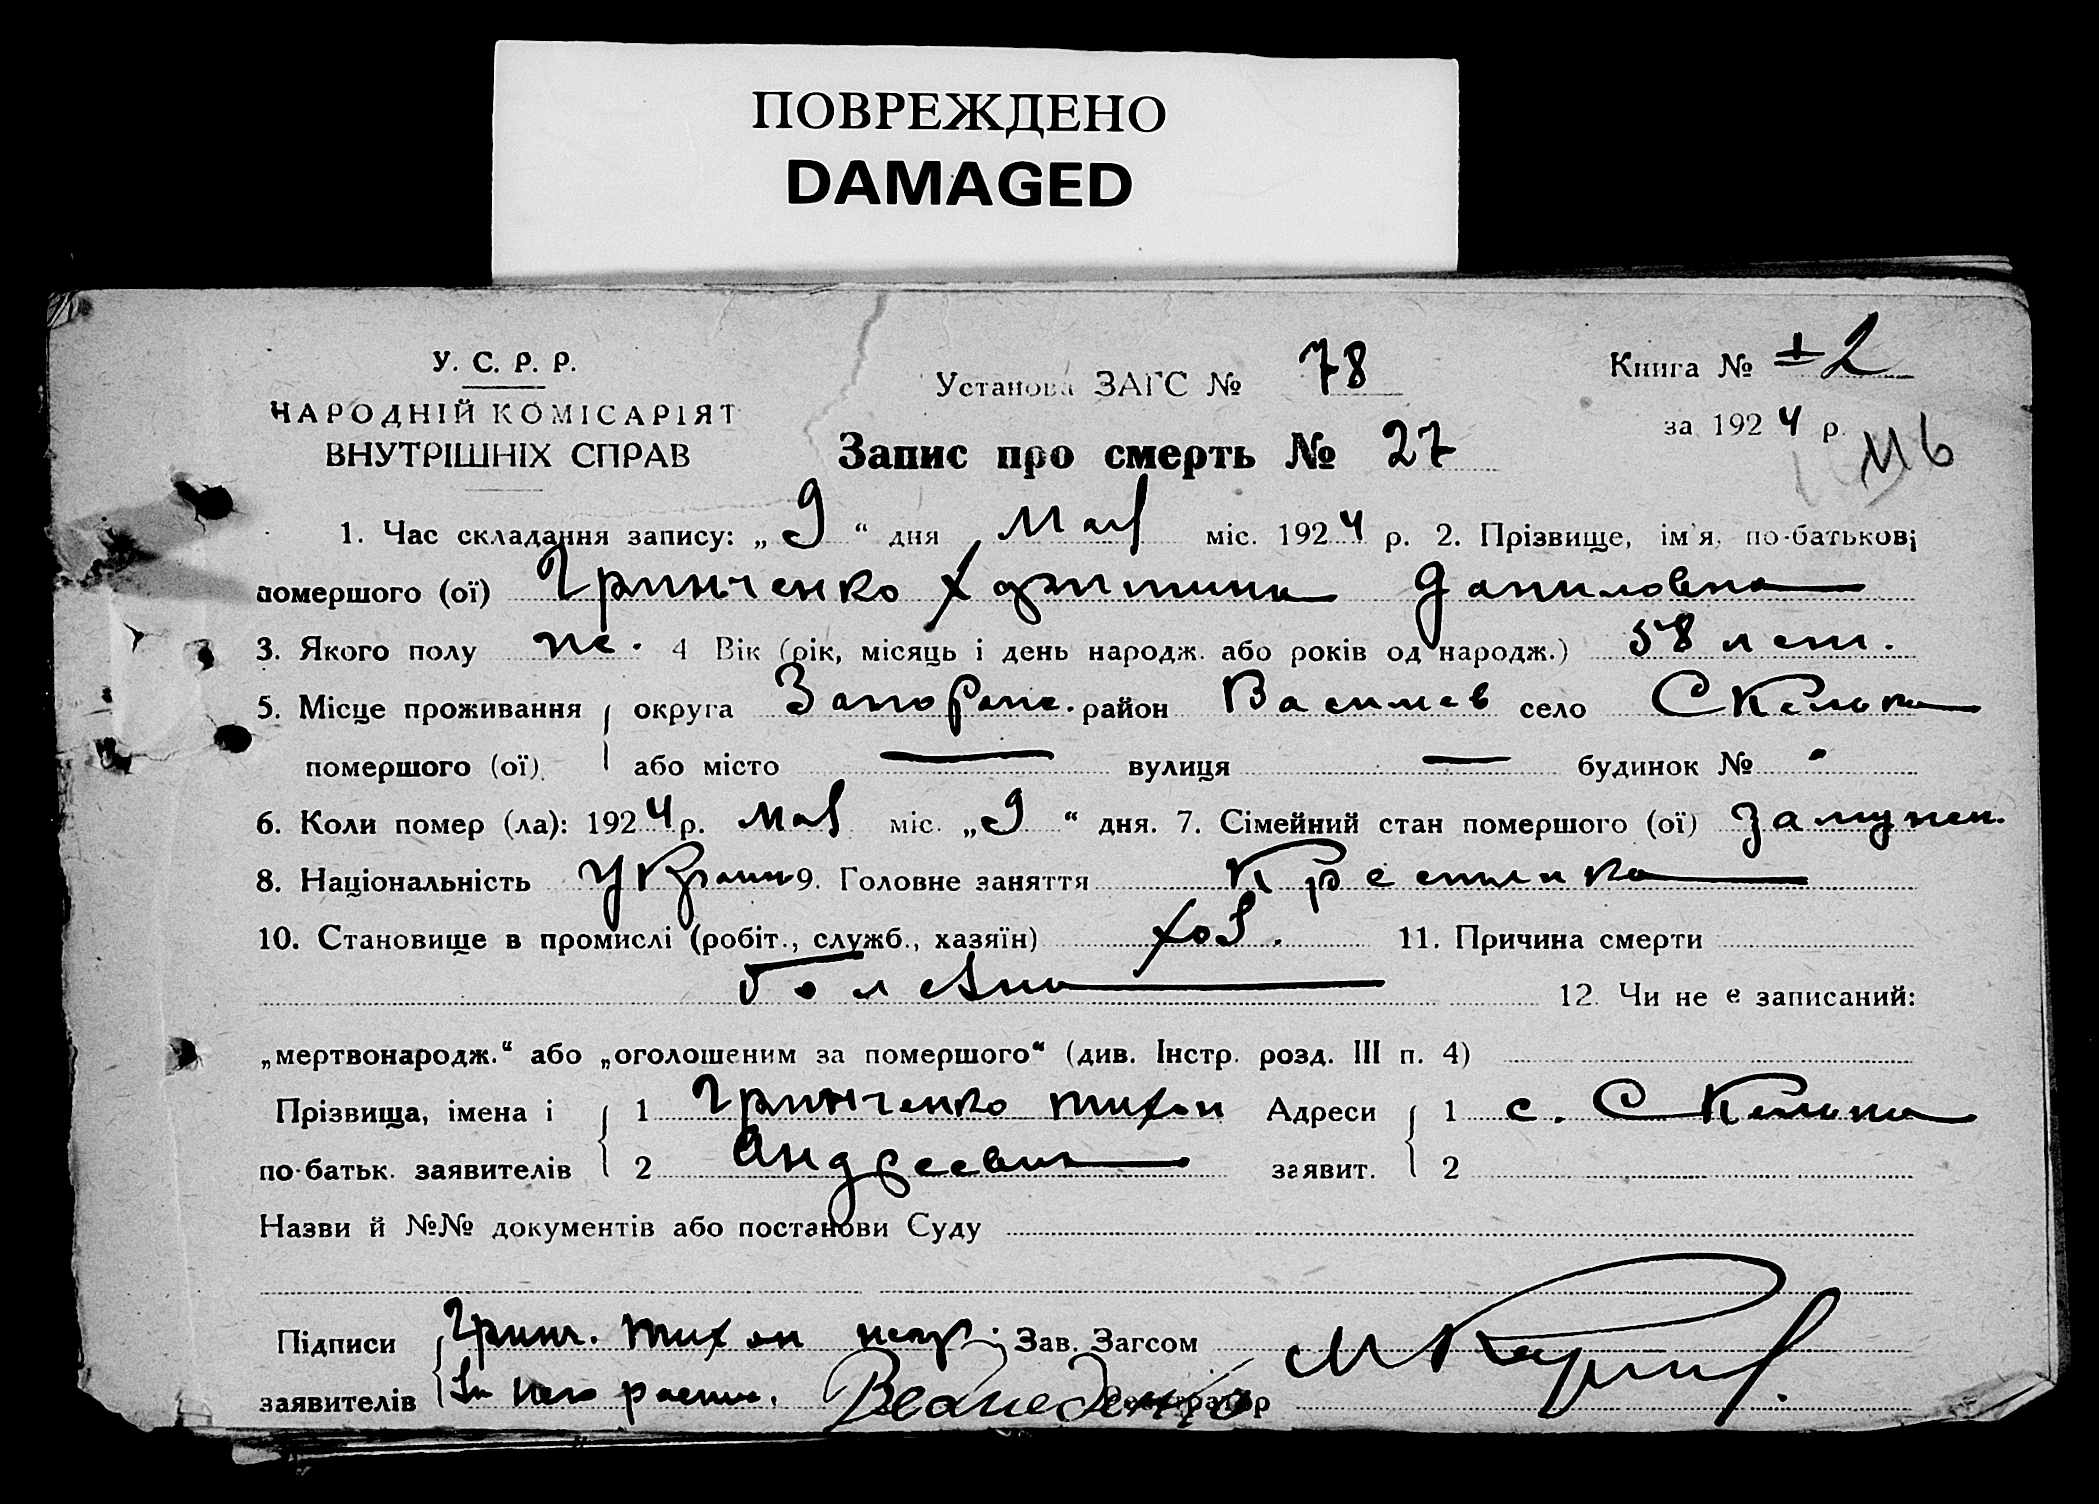 ПОВРЕЖДЕНО
DAMAGED
У. С. Р. Р.
НАРОДНІЙ КОМІСАРІЯТ
ВНУТРІШНІХ СПРАВ
Установа ЗАГС № 78
Книга № 2
за 1924 р.
116
Запис про смерть № 27
1. Час складання запису: „9“ дня Мая міс. 1924 р. 2. Прізвище, ім'я, по-батькові
помершого (ої) Гринченко Даниловна
3. Якого полу же. 4 Вік (рік, місяць і день народж. або років од народж.) 58 лет.
5. Місце проживання округа Запорож. район Васильев село Скельки
помершого (ої) або місто — вулиця — будинок №
6. Коли помер (ла): 1924 р. Мая міс. „9“ дня. 7. Сімейний стан помершого (ої) Замужем.
8. Національність Украин 9. Головне заняття Крестьянка
10. Становище в промислі (робіт., служб., хазяїн) хоз. 11. Причина смерти
12. Чи не є записаний:
„мертвонародж.“ або „оголошеним за помершого“ (див. Інстр. розд. III п. 4)
Прізвища, імена і 1 Гринченко Тихон Адреси 1 с. Скельки
по-батьк. заявителів 2 Андреевич заявит. 2
Назви й №№ документів або постанови Суду
Підписи Гринч. Тихон негр. Зав. Загсом
заявителів За него распис. Регистратор